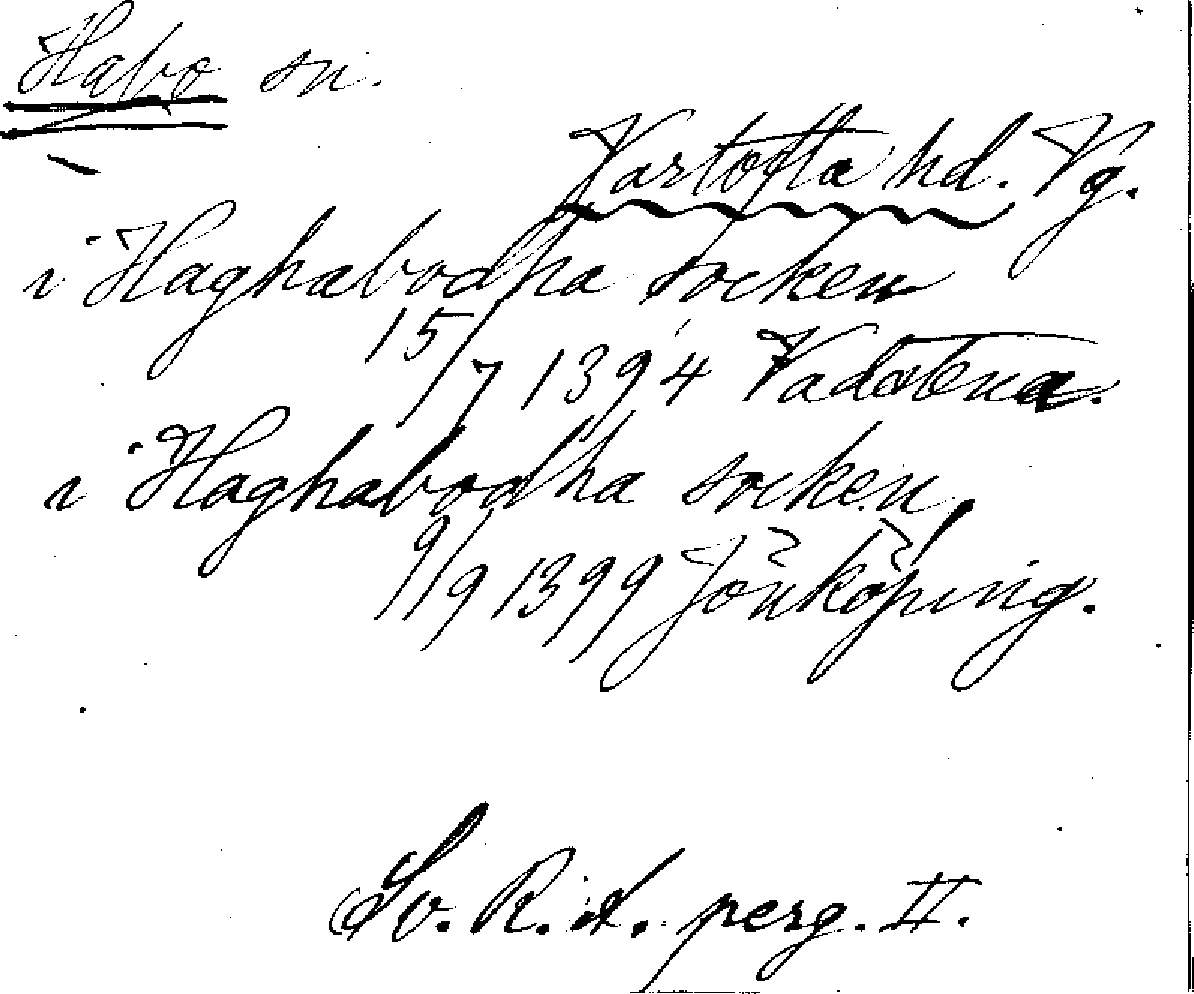 Habo sn.
Vartofta hd. Vg.
i Haghabodha socken
15/7 1394 Vadstena.
i Haghabodha socken,
9/9 1399 Jönköping.
Sv. R. A. perg. II.